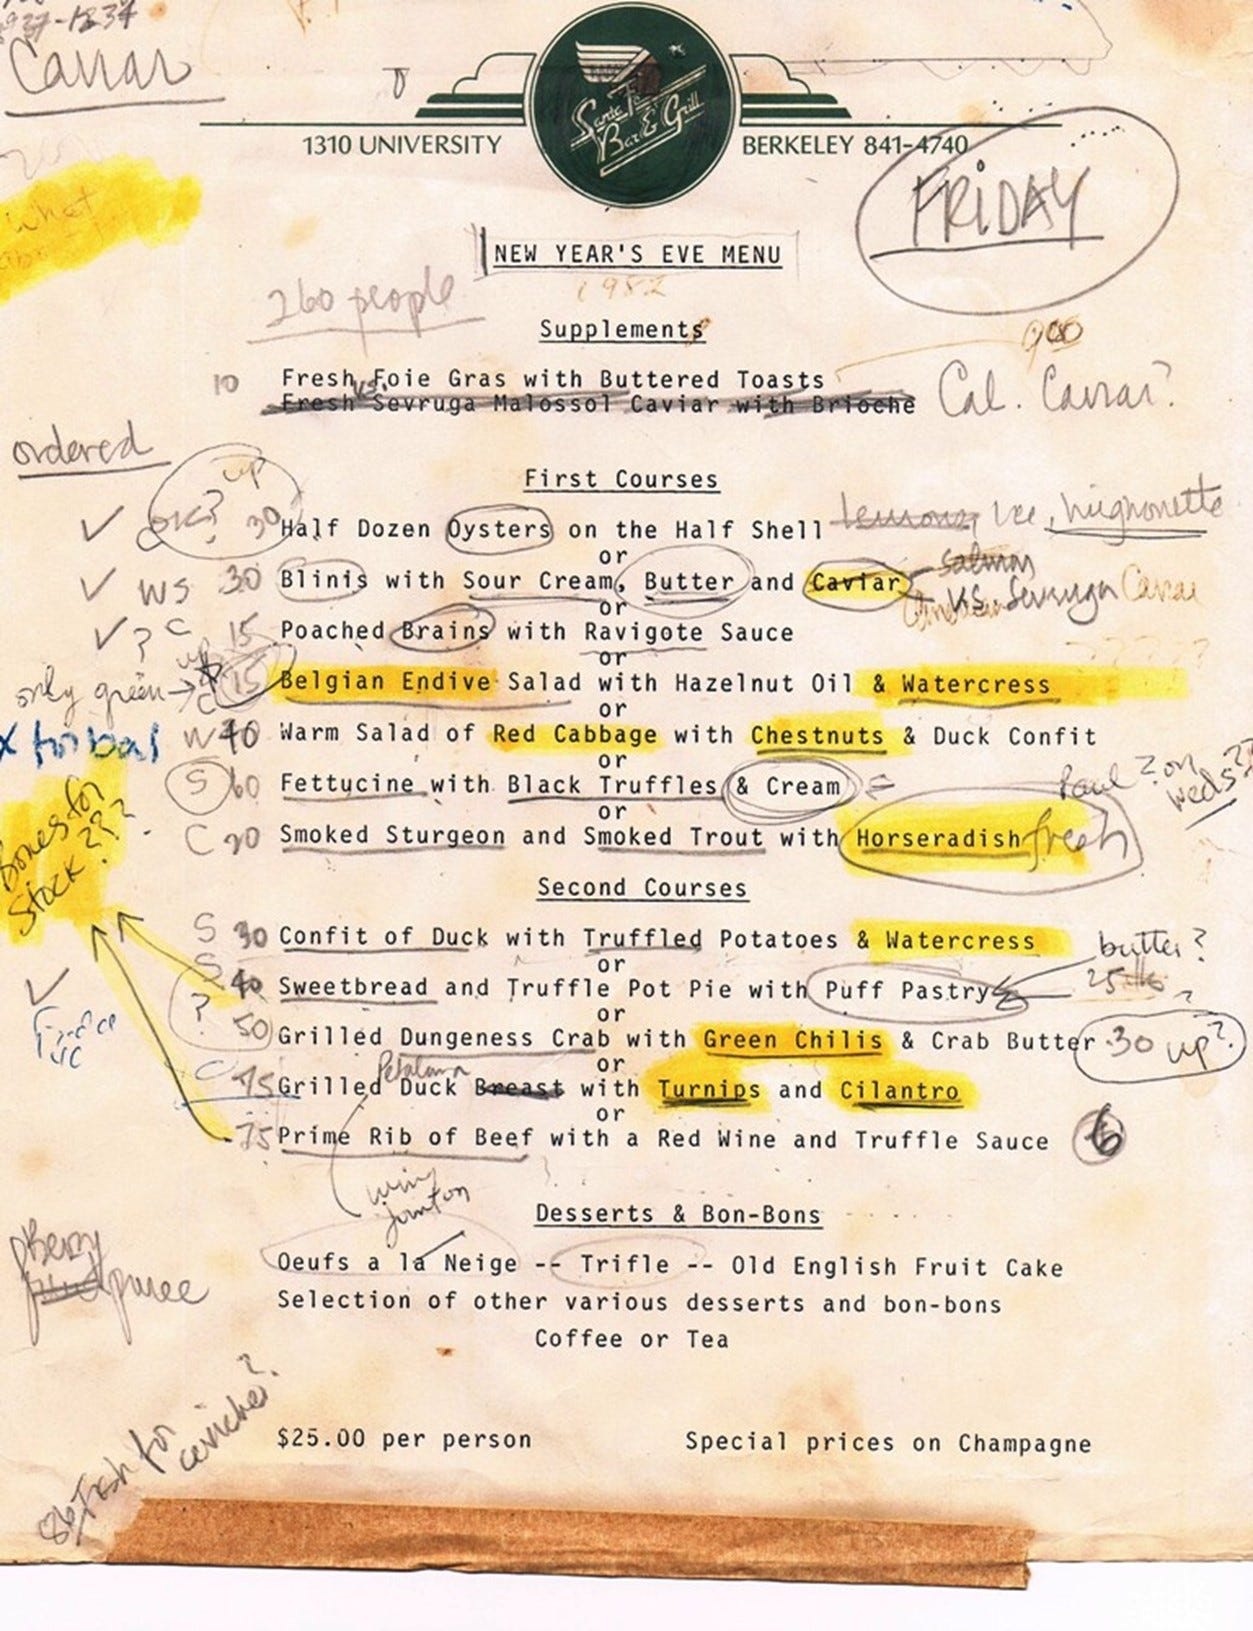 Caviar
Santa Fe
Bar & Grill
1310 UNIVERSITY BERKELEY 841-4740
FRIDAY
what
NEW YEAR'S EVE MENU
1982
260 people
Supplements
10 Fresh Foie Gras with Buttered Toasts
vs.
Fresh Sevruga Malossol Caviar with Brioche Cal. Caviar?
ordered
up?
First Courses
OK? 30 Half Dozen Oysters on the Half Shell lemons, ice, mignonette
or
WS 30 Blinis with Sour Cream, Butter and Caviar salmon
vs. Sevruga Caviar
or
? C 15 Poached Brains with Ravigote Sauce
or
up
only green → C 15 Belgian Endive Salad with Hazelnut Oil & Watercress
or
X for bar W 40 Warm Salad of Red Cabbage with Chestnuts & Duck Confit
or
S 60 Fettucine with Black Truffles & Cream Paul? on Weds??
or
C 20 Smoked Sturgeon and Smoked Trout with Horseradish fresh
Bones for
stock???
Second Courses
S 30 Confit of Duck with Truffled Potatoes & Watercress
or
S 40 Sweetbread and Truffle Pot Pie with Puff Pastry butter?
25 lb ?
or
? 50 Grilled Dungeness Crab with Green Chilis & Crab Butter 30 up?
or
Petaluma
C 45 Grilled Duck Breast with Turnips and Cilantro
or
75 Prime Rib of Beef with a Red Wine and Truffle Sauce 6
wing
joint on
Desserts & Bon-Bons
Berry
puree
Oeufs a la Neige -- Trifle -- Old English Fruit Cake
Selection of other various desserts and bon-bons
Coffee or Tea
86 Fish for
ceviche?
$25.00 per person Special prices on Champagne